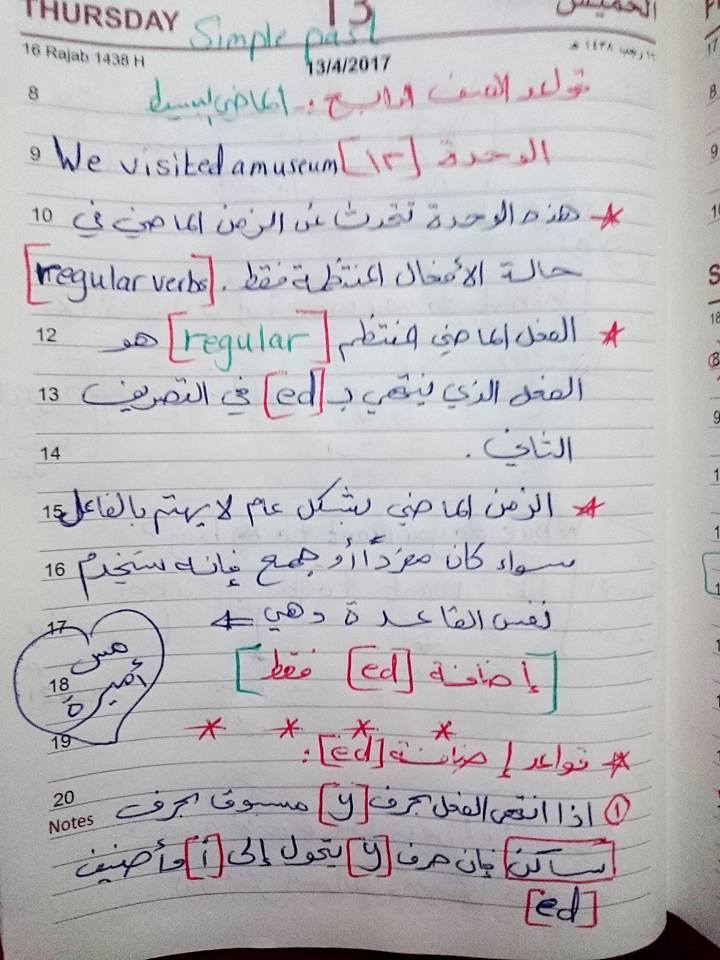 THURSDAY 13 الخميس
Simple past
16 Rajab 1438 H 13/4/2017 ١٦ رجب ١٤٣٨ هـ
8 قواعد الصف الرابع : الماضي البسيط
9 We visited a museum [١٢] الوحدة
10 * هذه الوحدة تتحدث عن الزمن الماضي في
حالة الأفعال المنتظمة فقط . [regular verbs]
12 * الفعل الماضي المنتظم [regular] هو
13 الفعل الذي ينتهي بـ [ed] في التصريف
14 الثاني .
15 * الزمن الماضي بشكل عام لا يهتم بالفاعل
16 سواء كان مفرداً أو جمع فإنه ستخدم
17 نفس القاعدة وهي ⇐
18 [إضافة [ed] فقط]
مس
أميرة
19 * * * *
* قواعد إضافة [ed]:
20 ① اذا انتهى الفعل بحرف [y] مسبوق بحرف
Notes ساكن فإن حرف [y] يتحول إلى [i] وأضيف
[ed]